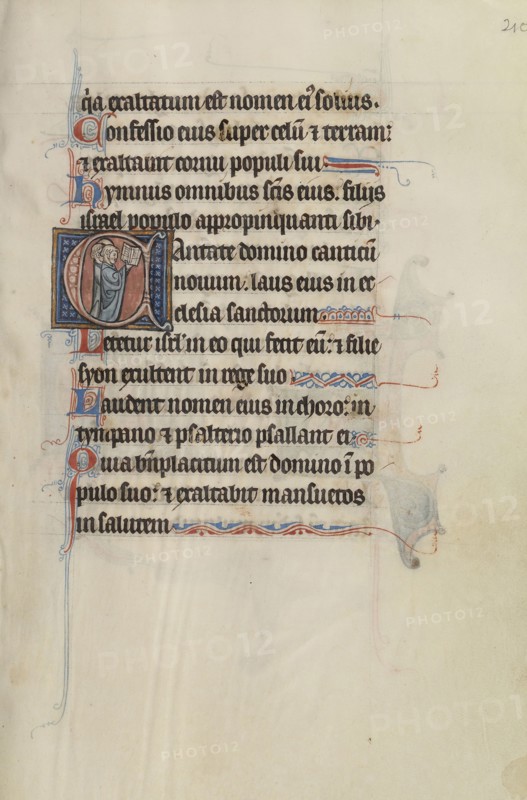 21c
q̇a exaltatum est nomen ei⁹ solius.
Confessio eius super celū ⁊ terram:
⁊ exaltauit cornu populi sui
hymnus omnibus sc̄is eius. filijs
israel populo appropinquanti sibi.
CAntate domino canticū
nouum. laus eius in ec
clesia sanctorum
Letetur isrl̄ in eo qui fecit eū: ⁊ filie
syon exultent in rege suo
Laudent nomen eius in choro: in
tympano ⁊ psalterio psallant ei
Quia bn̄placitum est domino ī po
pulo suo: ⁊ exaltabit mansuetos
in salutem
PHOTO12